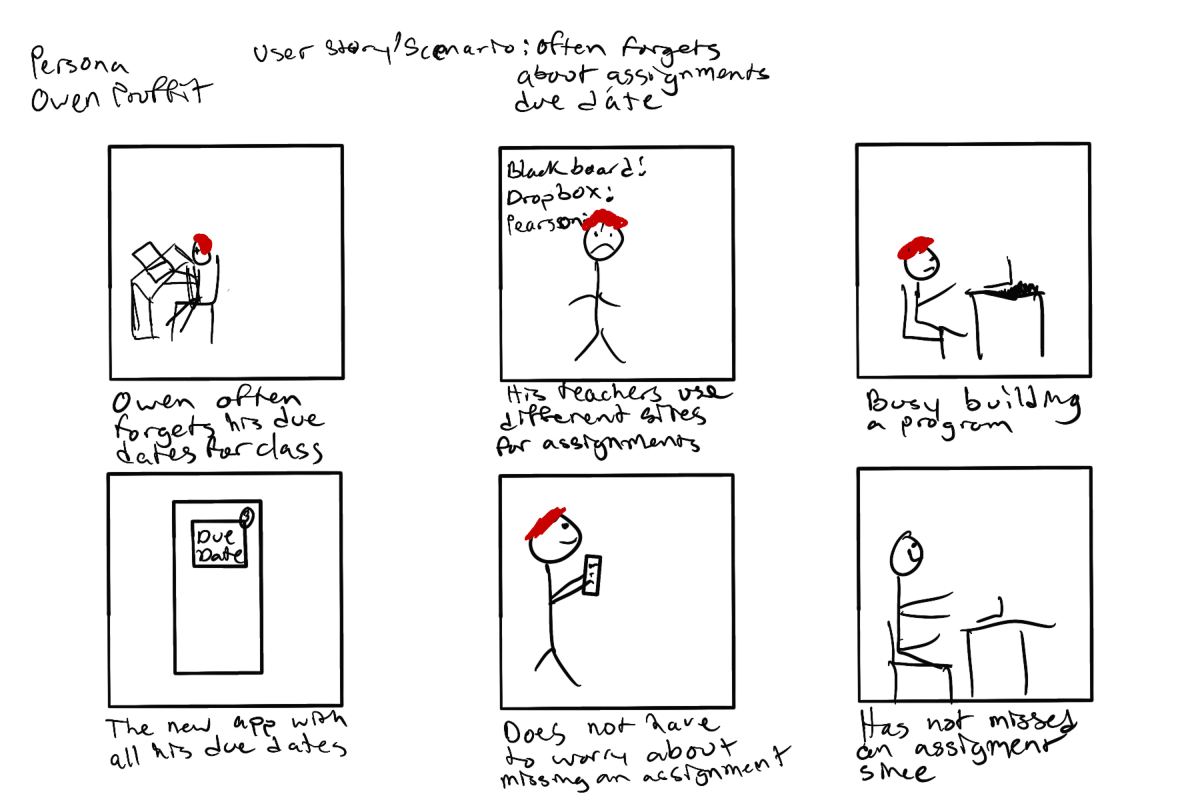 Persona
Owen Pruffit
User Story/Scenario: often forgets
about assignments
due date
Blackboard:
Dropbox:
Pearson:
Owen often
forgets his due
dates for class
His teachers use
different sites
for assignments
Busy building
a program
Due
Date
The new app with
all his due dates
Does not have
to worry about
missing an assignment
Has not missed
an assigment
since